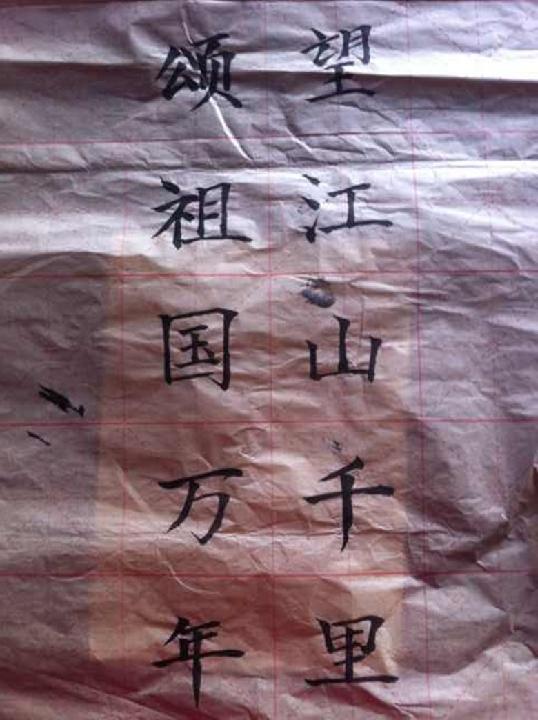 望江山千里
颂祖国万年